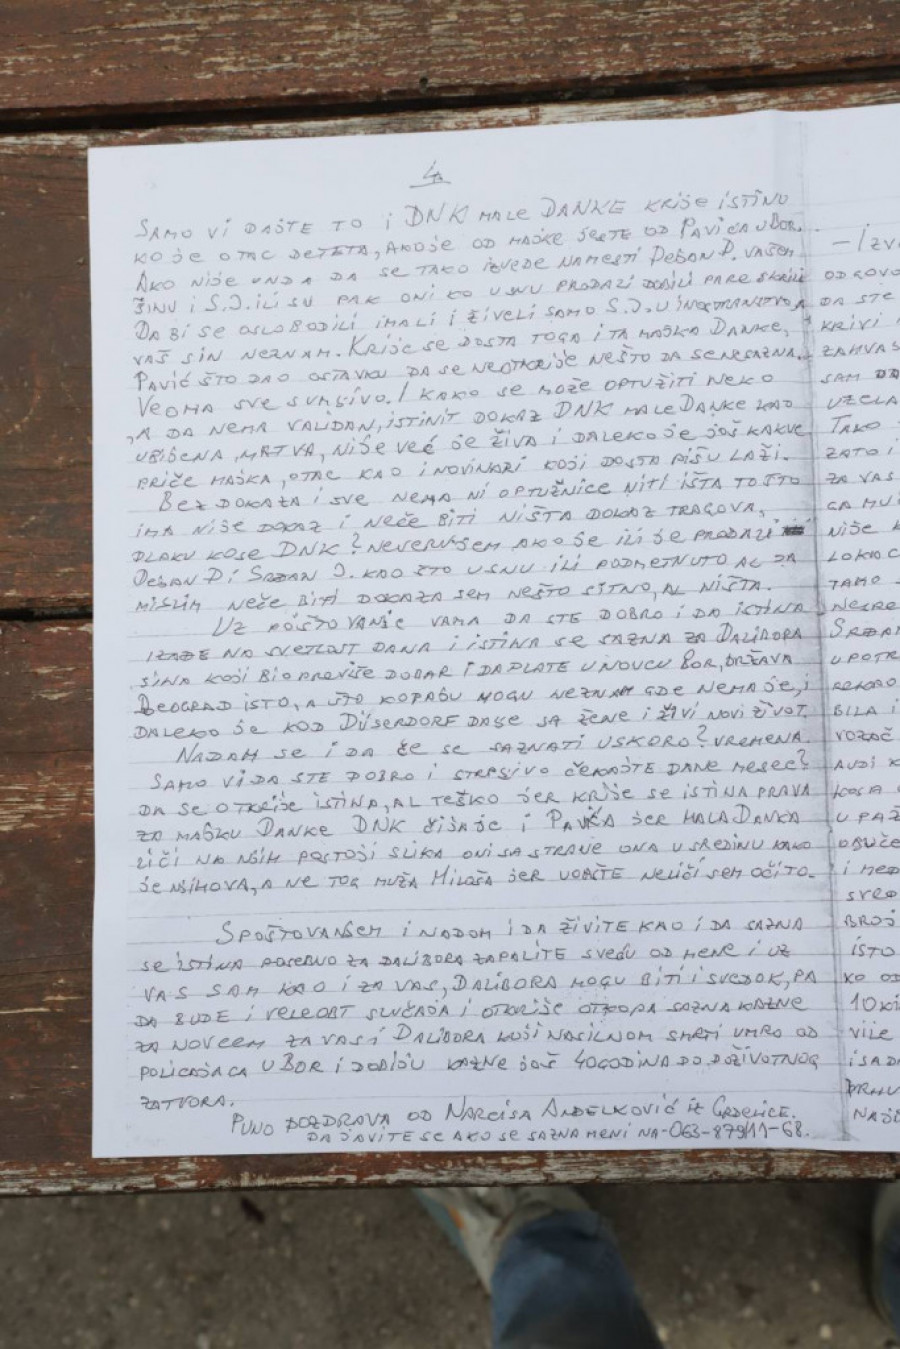 4
SAMO VI DAJTE TO I DNK MALE DANKE KRIJE ISTINU
KO JE OTAC DETETA, AKO JE OD MAJKE JESTE OD PAVIĆA U BOR.
AKO NIJE ONDA DA SE TAKO IZVEDE NAMESTI DEJAN D. VAŠEM
SINU I S.J. ILI SU PAK ONI KO USNU PRODAZI DOBILI PARE SKRILI
DA BI SE OSLOBODILI IMALI I ŽIVELI SAMO S.J. U INOSTRANSTVO, A
VAŠ SIN NEZNAM. KRIJE SE DOSTA TOGA I TA MAJKA DANKE,
PAVIĆ ŠTO DAO OSTAVKU DA SE NEOTKRIJE NEŠTO DA SE NESAZNA.
VEOMA SVE SUMJIVO. I KAKO SE MOŽE OPTUŽITI NEKO
, A DA NEMA VALIDAN, ISTINIT DOKAZ DNK MALE DANKE KAO
UBIJENA, MRTVA, NIJE VEĆ JE ŽIVA I DALEKO JE JOŠ KAKVE
PRIČE MAJKA, OTAC KAO I NOVINARI KOJI DOSTA PIŠU LAŽI.
BEZ DOKAZA I SVE NEMA NI OPTUŽNICE NITI IŠTA TO ŠTO
IMA NIJE DOKAZ I NEČE BITI NIŠTA DOKAZ TRAGOVA,
DLAKU KOSE DNK? NEVERUJEM AKO JE ILI JE PRODAZI
DEJAN D I SRĐAN J. KAO ŠTO USNU ILI PODMETNUTO AL DA
MISLIM NEČE BITI DOKAZA SEM NEŠTO SITNO, AL NIŠTA.
UZ POŠTOVANJE VAMA DA STE DOBRO I DA ISTINA
IZAĐE NA SVETLOST DANA I ISTINA SE SAZNA ZA DALIBORA
SINA KOJI BIO PREVIŠE DOBAR I DA PLATE U NOVCU BOR, DRŽAVA
BEOGRAD ISTO, A ŠTO KOPAJU MOGU NEZNAM GDE NEMA JE, I
DALEKO JE KOD DISERDORF DA JE SA ŽENE I ŽIVI NOVI ŽIVOT.
NADAM SE I DA ČE SE SAZNATI USKORO? VREMENA
SAMO VI DA STE DOBRO I STRPJIVO ČEKAJTE DANE MESEC?
DA SE OTKRIJE ISTINA, AL TEŠKO JER KRIJE SE ISTINA PRAVA
ZA MAJKU DANKE DNK ČIJA JE I PAVIĆA JER MALA DANKA
LIČI NA NJIH POSTOJI SLIKA ONI SA STRANE ONA U SREDINU KAKO
JE NJIHOVA, A NE TOG MUŽA MILOŠA JER UOPŠTE NELIČI SEM OČITO.
SPOŠTOVANJEM I NADOM I DA ŽIVITE KAO I DA SAZNA
SE ISTINA POSEBNO ZA DALIBORA ZAPALITE SVEĆU OD MENE I UZ
VAS SAM KAO I ZA VAS, DALIBORA MOGU BITI I SVEDOK, PA
DA BUDE I VELEOBT SLUČAJA I OTKRIJE SAZNA KAZNE
ZA NOVCEM ZA VAS I DALIBORA KOJI NASILNOM SMRTI UMRO OD
POLICAJACA U BOR I DOBIJU KAZNE JOŠ 40 GODINA DO DOŽIVOTNOG
ZATVORA.
PUNO POZDRAVA OD NARCISA ANĐELKOVIĆ IZ GRDELICE.
DA JAVITE SE AKO SE SAZNA MENI NA-063-879/11-68.
– IZVI
ODGOVO
DA STE
KRIVI
ZAHVAS
SAM
UZELA
TAKO
ZATO I
ZA VAS
GA MUI
NIJE
LOKAC
TAMO
NESRE
SRĐAN
UPOTR
REKORD
BILA I
VOZAČ
AUDI
KOSA
U PAŽ
OBUČE
I MED
SRED
BROJ
ISTO
KO OD
10 KI
VIJE
I SADA
PRHU
NAJE